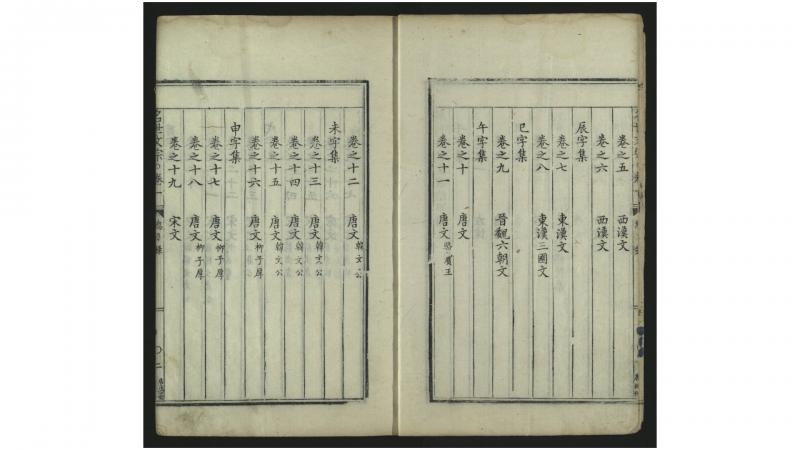 卷之五 西漢文
卷之六 西漢文
辰字集
卷之七 東漢文
卷之八 東漢三國文
巳字集
卷之九 晉魏六朝文
午字集
卷之十 唐文
卷之十一 唐文 駱賓王
卷之十二 唐文 韓文公
未字集
卷之十三 唐文 韓文公
卷之十四 唐文 韓文公
卷之十五 唐文 韓文公
卷之十六 唐文 柳子厚
申字集
卷之十七 唐文 柳子厚
卷之十八 唐文 柳子厚
卷之十九 宋文
名世文宗 卷一